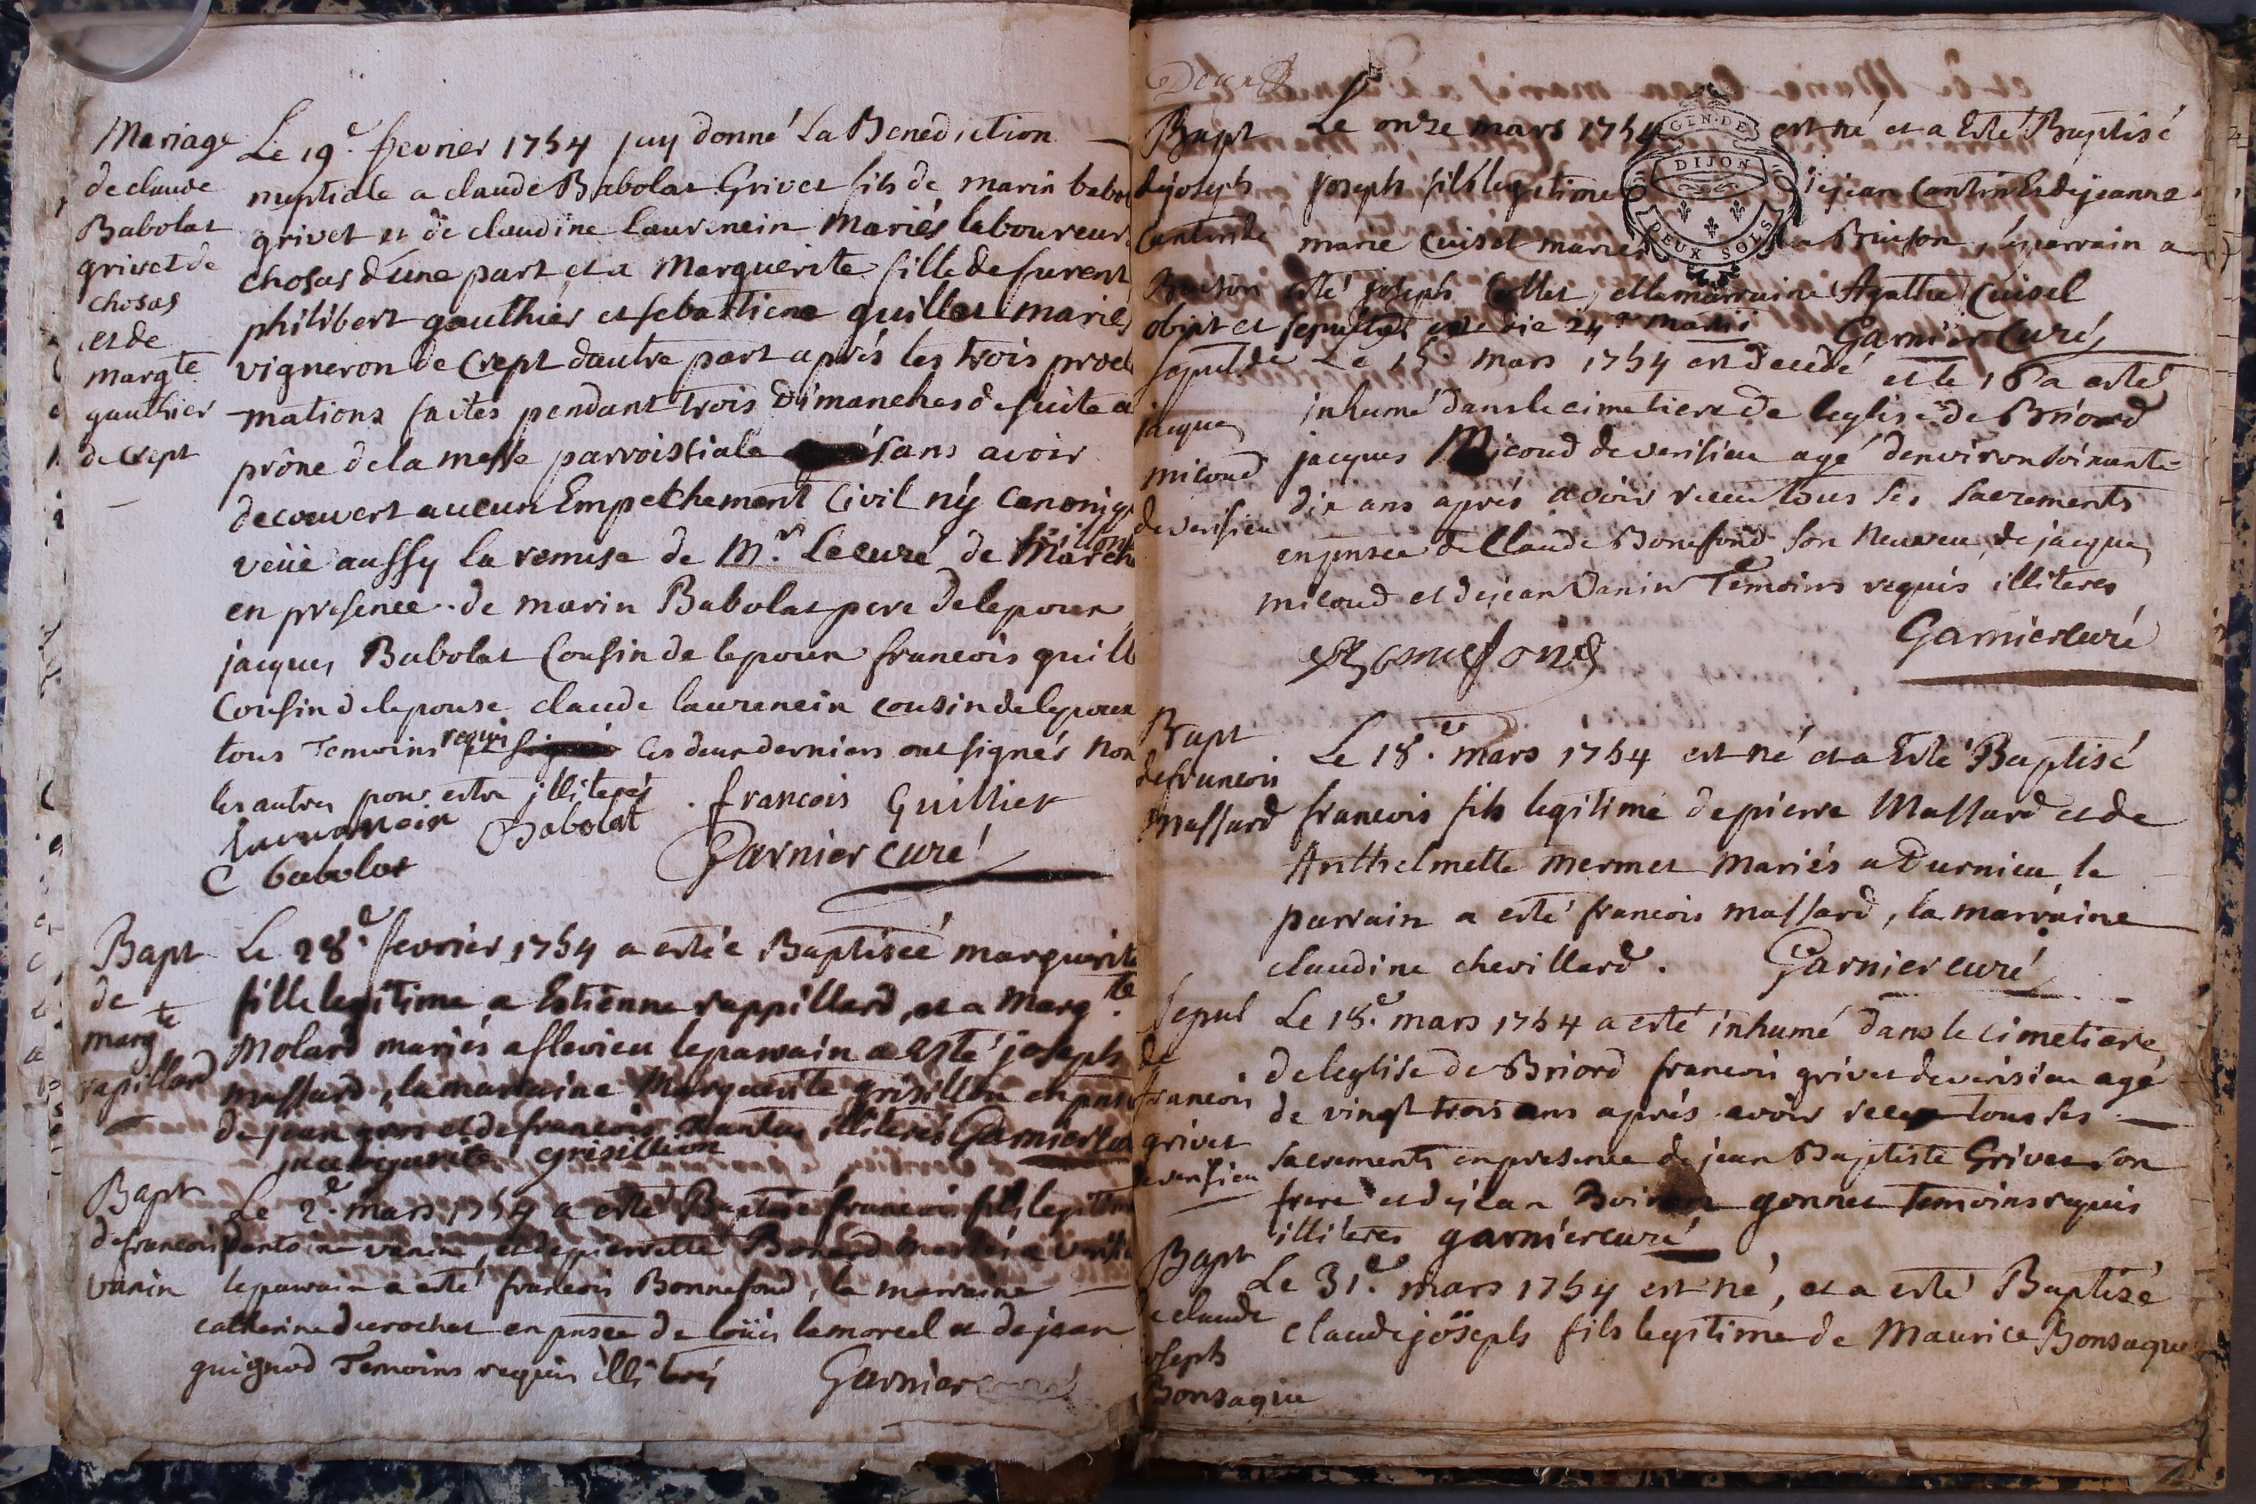 Mariage
de claude
Babolat
grivet de
chosas
et de
margte
gauthier
de Crept
Le 19e fevrier 1754 jay donné La Benediction
nuptiale a claude Babolat Grivet fils de marin babol
grivet et de claudine Laurencin mariés laboureur
chosas d'une part, et a Marguerite fille de furent
philibert gauthier et sebastiene quillet mariés
vigneron de Crept d'autre part aprés les trois procl
mations faites pendant trois Dimanches de suite a
prône de la messe parroissiale sans avoir
decouvert aucun Empechement Civil ny Canoniq
veüe aussy la remise de Mr. Le curé de March
en presence de marin Babolat pere de lepoux
jacques Babolat Cousin de lepoux francois quill
Cousin de lepouse claude laurencin cousin de lepoux
tous Temoins requis Les deux derniers ont signés non
les autres pour estre illiterés
francois Guillier
laurancin Babolat
C babolat
Garnier curé
Bapt
de
margte
rapillard
Le 28e fevrier 1754 a estée Baptisée marguerite
fille legitime a Estienne rappillard, et a Margte
Molard mariés a flevieu le parrain a Esté joseph
massard, la marraine Marguerite grisillon en pnce
de jean gros et de francois illiterés Garnier Cu
marguerite grisillion
Bapt
de francois
vanin
Le 2e mars 1754 a esté Baptisé francois fils legitime
d'antoine vanin, et de pierrette Bonard mariés a verisi
le parrain a esté francois Bonnefond, la marraine
catherine ducrochet en pnsce de loüis lamorcel et de jean
guignod Temoins requis illiterés
Garnier curé
Bapt
de joseph
Cantin de
Bruison
Le onze mars 1754 est né et a Esté Baptisé
joseph fils legitime de jean Cantin Et de jeanne
marie Cuisel mariés a Bruison, le parrain a
esté joseph Collet, et la marraine Agathe Cuisel
obiit et sepultus est die 24a martii Garnier Curé
GEN. DE
DIJON
DEUX SOLS
Sepult de
jacques
micoud
de verisieu
Le 15e mars 1754 est decedé et le 16 a esté
inhumé dans le cimetiere de leglise de Briord
jacques Micoud de verisieu agé d'environ soixante
dix ans aprés avoir receu tous ses sacrements
en pnsce de Claude Bonefond son neuveu, de jacques
micoud et de jean Vanin Temoins requis illiteres
Bonnefond
Garnier curé
Bapt
de francois
Massard
Le 18e. mars 1754 est né et a Esté Baptisé
francois fils legitime de pierre Massard et de
Anthelmette mermet Mariés a Durnieu, le
parrain a esté francois massard, la marraine
claudine chevillard. Garnier curé
Sepul
de
francois
grivet
de verisieu
Le 18e. mars 1754 a esté inhumé dans le cimetiere
de leglise de Briord francois grivet de verisieu agé
de vingt trois ans aprés avoir receu tous ses
sacrements en presence de jean Baptiste Grivet son
frere et de jean gonnet Temoins requis
illiteres garnier curé
Bapt
de claude
joseph
Bonsaque
Le 31e. mars 1754 est né, et a esté Baptisé
Claude joseph fils legitime de Maurice Bonsaque